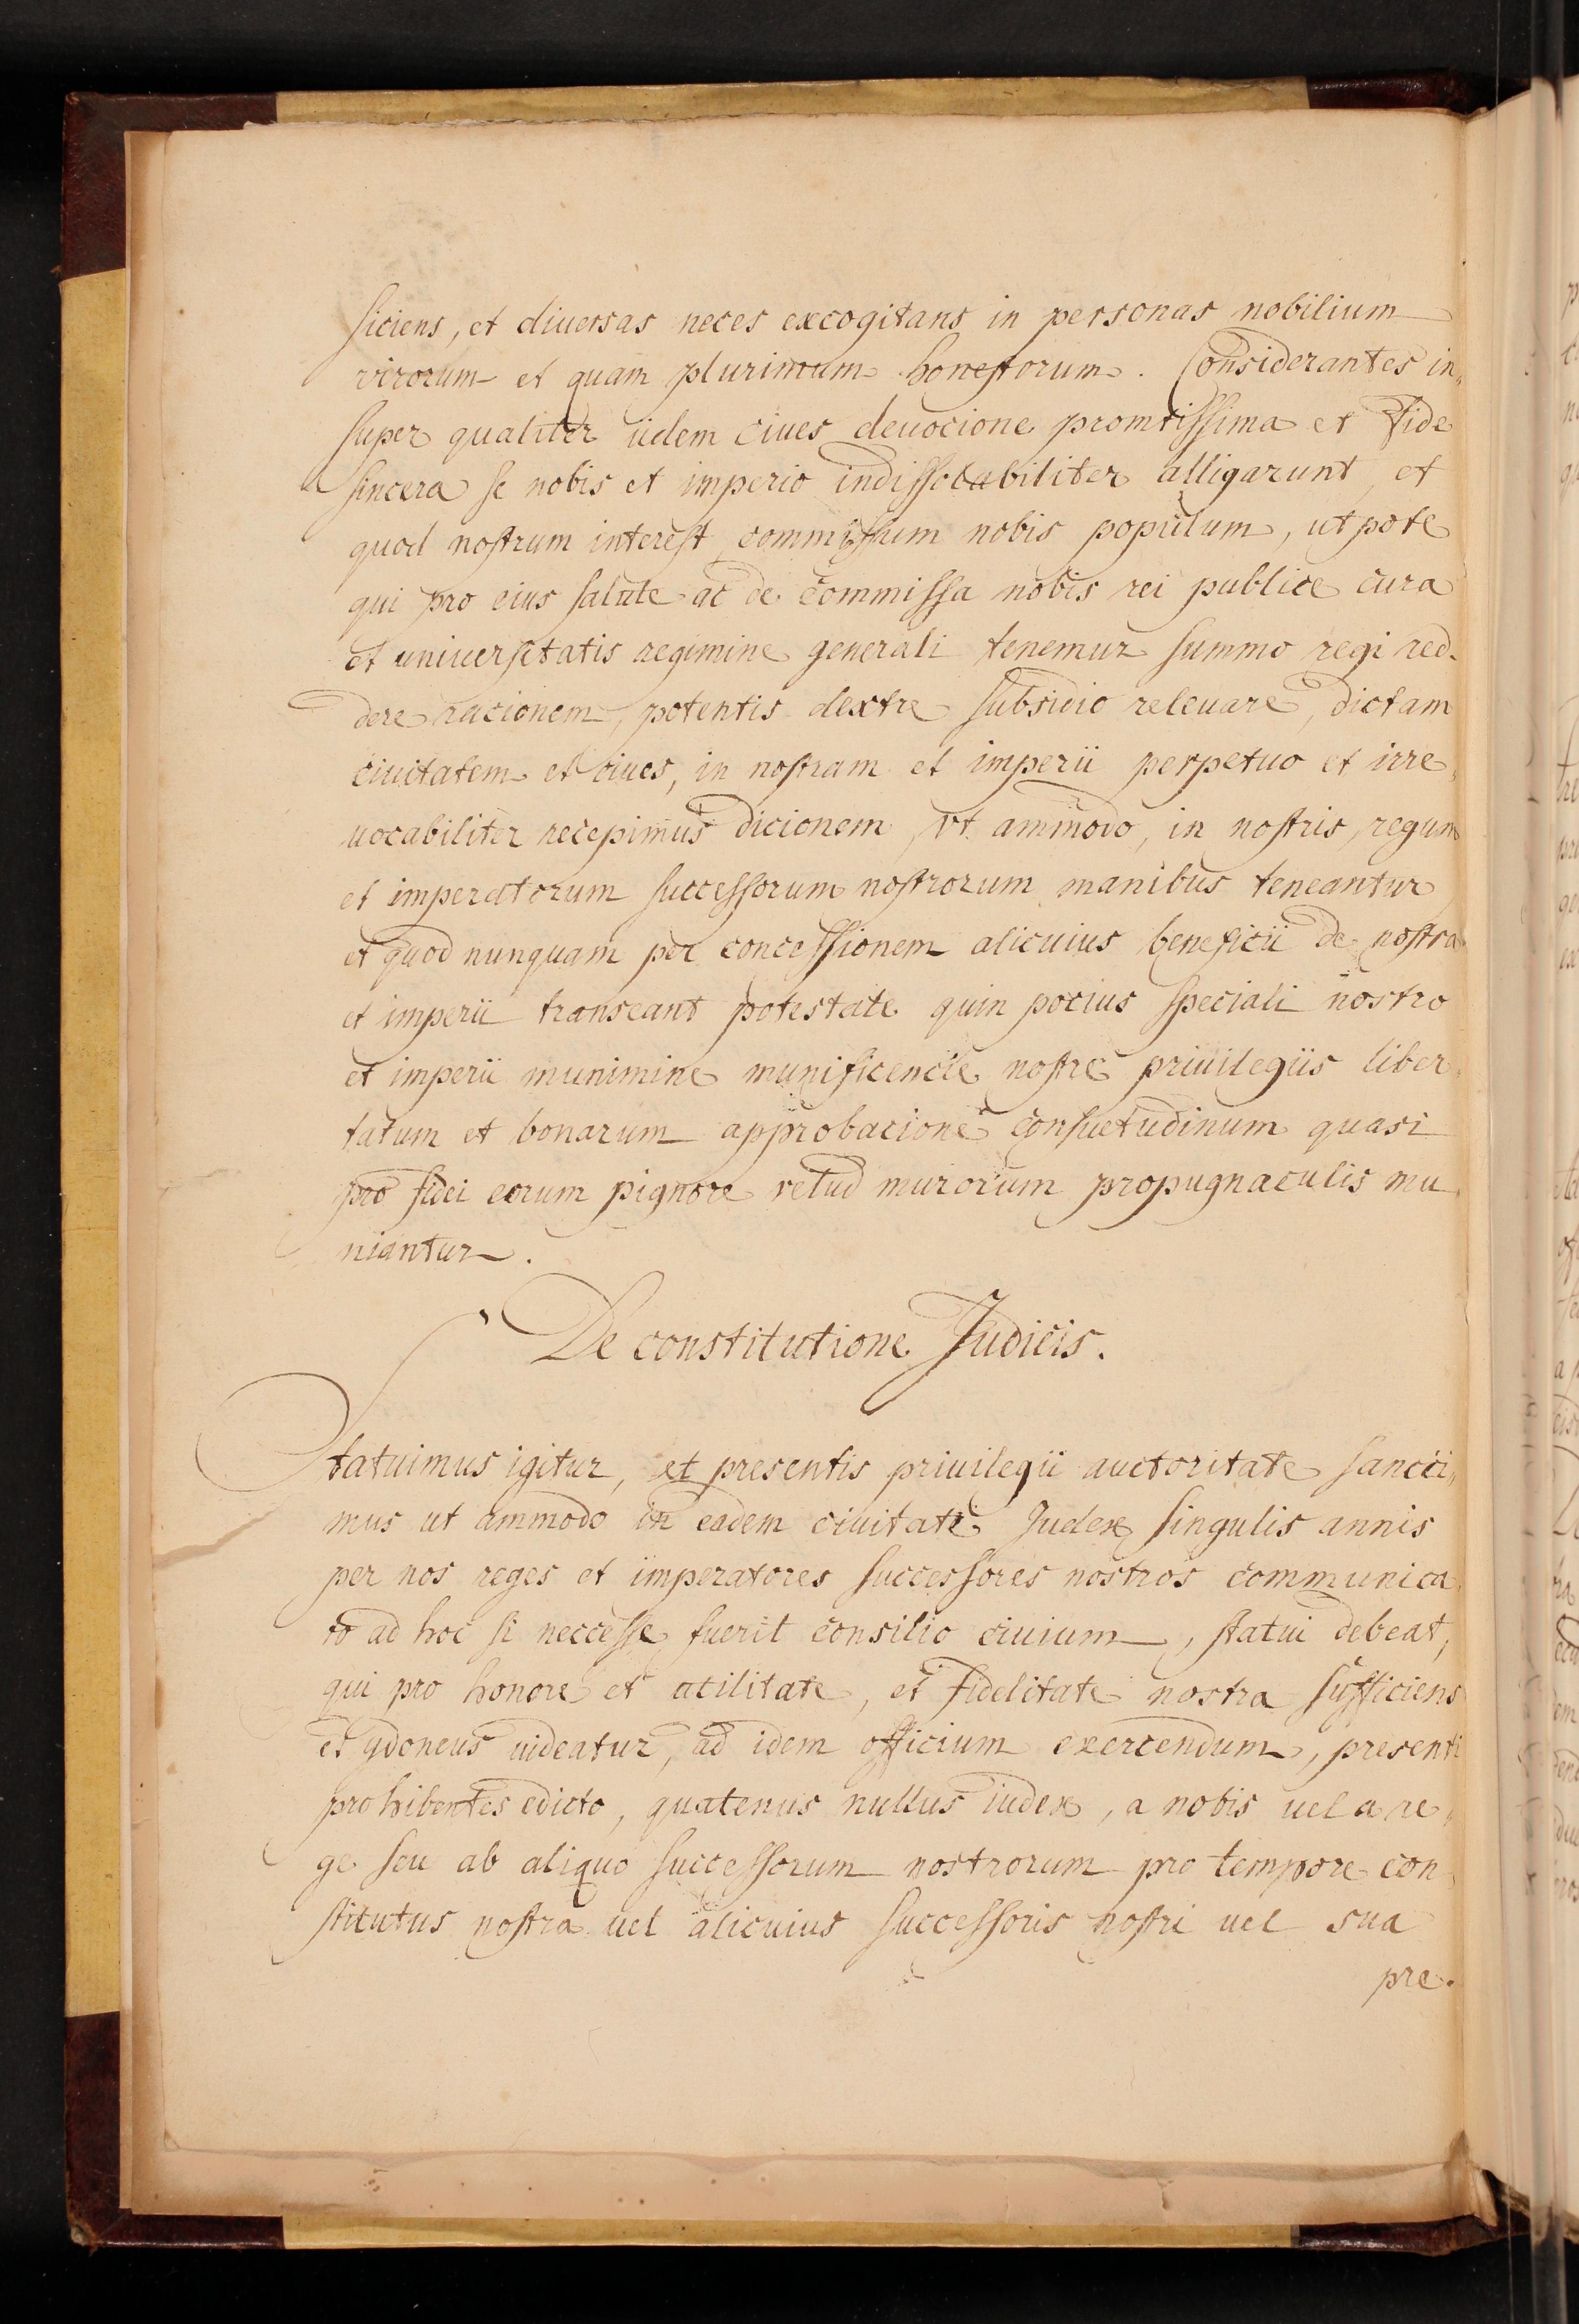 ficiens, et diuersas neces excogitans in personas nobilium
virorum et quam plurimum honestorum. Considerantes in„
super qualiter iidem ciues deuocione promtissima et fide
sincera se nobis et imperio indissolubiliter alligarunt, et
quod nostrum interest commissum nobis populum, utpote
qui pro eius salute ac de commissa nobis rei publice cura
et uniuersitatis regimine generali tenemur summo regi red„
dere racionem, potentis dextre subsidio releuare, dictam
ciuitatem et ciues, in nostram et imperii perpetuo et irre„
uocabiliter recepimus dicionem, vt ammodo, in nostris, regum
et imperatorum successorum nostrorum manibus teneantur
et quod nunquam per concessionem alicuius beneficii de nostra
et imperii transeant potestate quin pocius speciali nostro
et imperii munimine munificencie nostre priuilegiis liber„
tatum et bonarum approbacione consuetudinum quasi
pro fidei eorum pignore velud murorum propugnaculis mu„
niantur.
De constitutione Judicis.
Statuimus igitur, et presentis priuilegii auctoritate sancci„
mus ut ammodo in eadem ciuitate Judex singulis annis
per nos reges et imperatores successores nostros communica„
to ad hoc si neccesse fuerit consilio ciuium, statui debeat,
qui pro honore et utilitate, et fidelitate nostra sufficiens
et ydoneus uideatur, ad idem officium exercendum, presenti
prohibentes edicto, quatenus nullus iudex, a nobis uel a re„
ge seu ab aliquo successorum nostrorum pro tempore con„
stitutus nostra uel alicuius successoris nostri uel sua
pre„